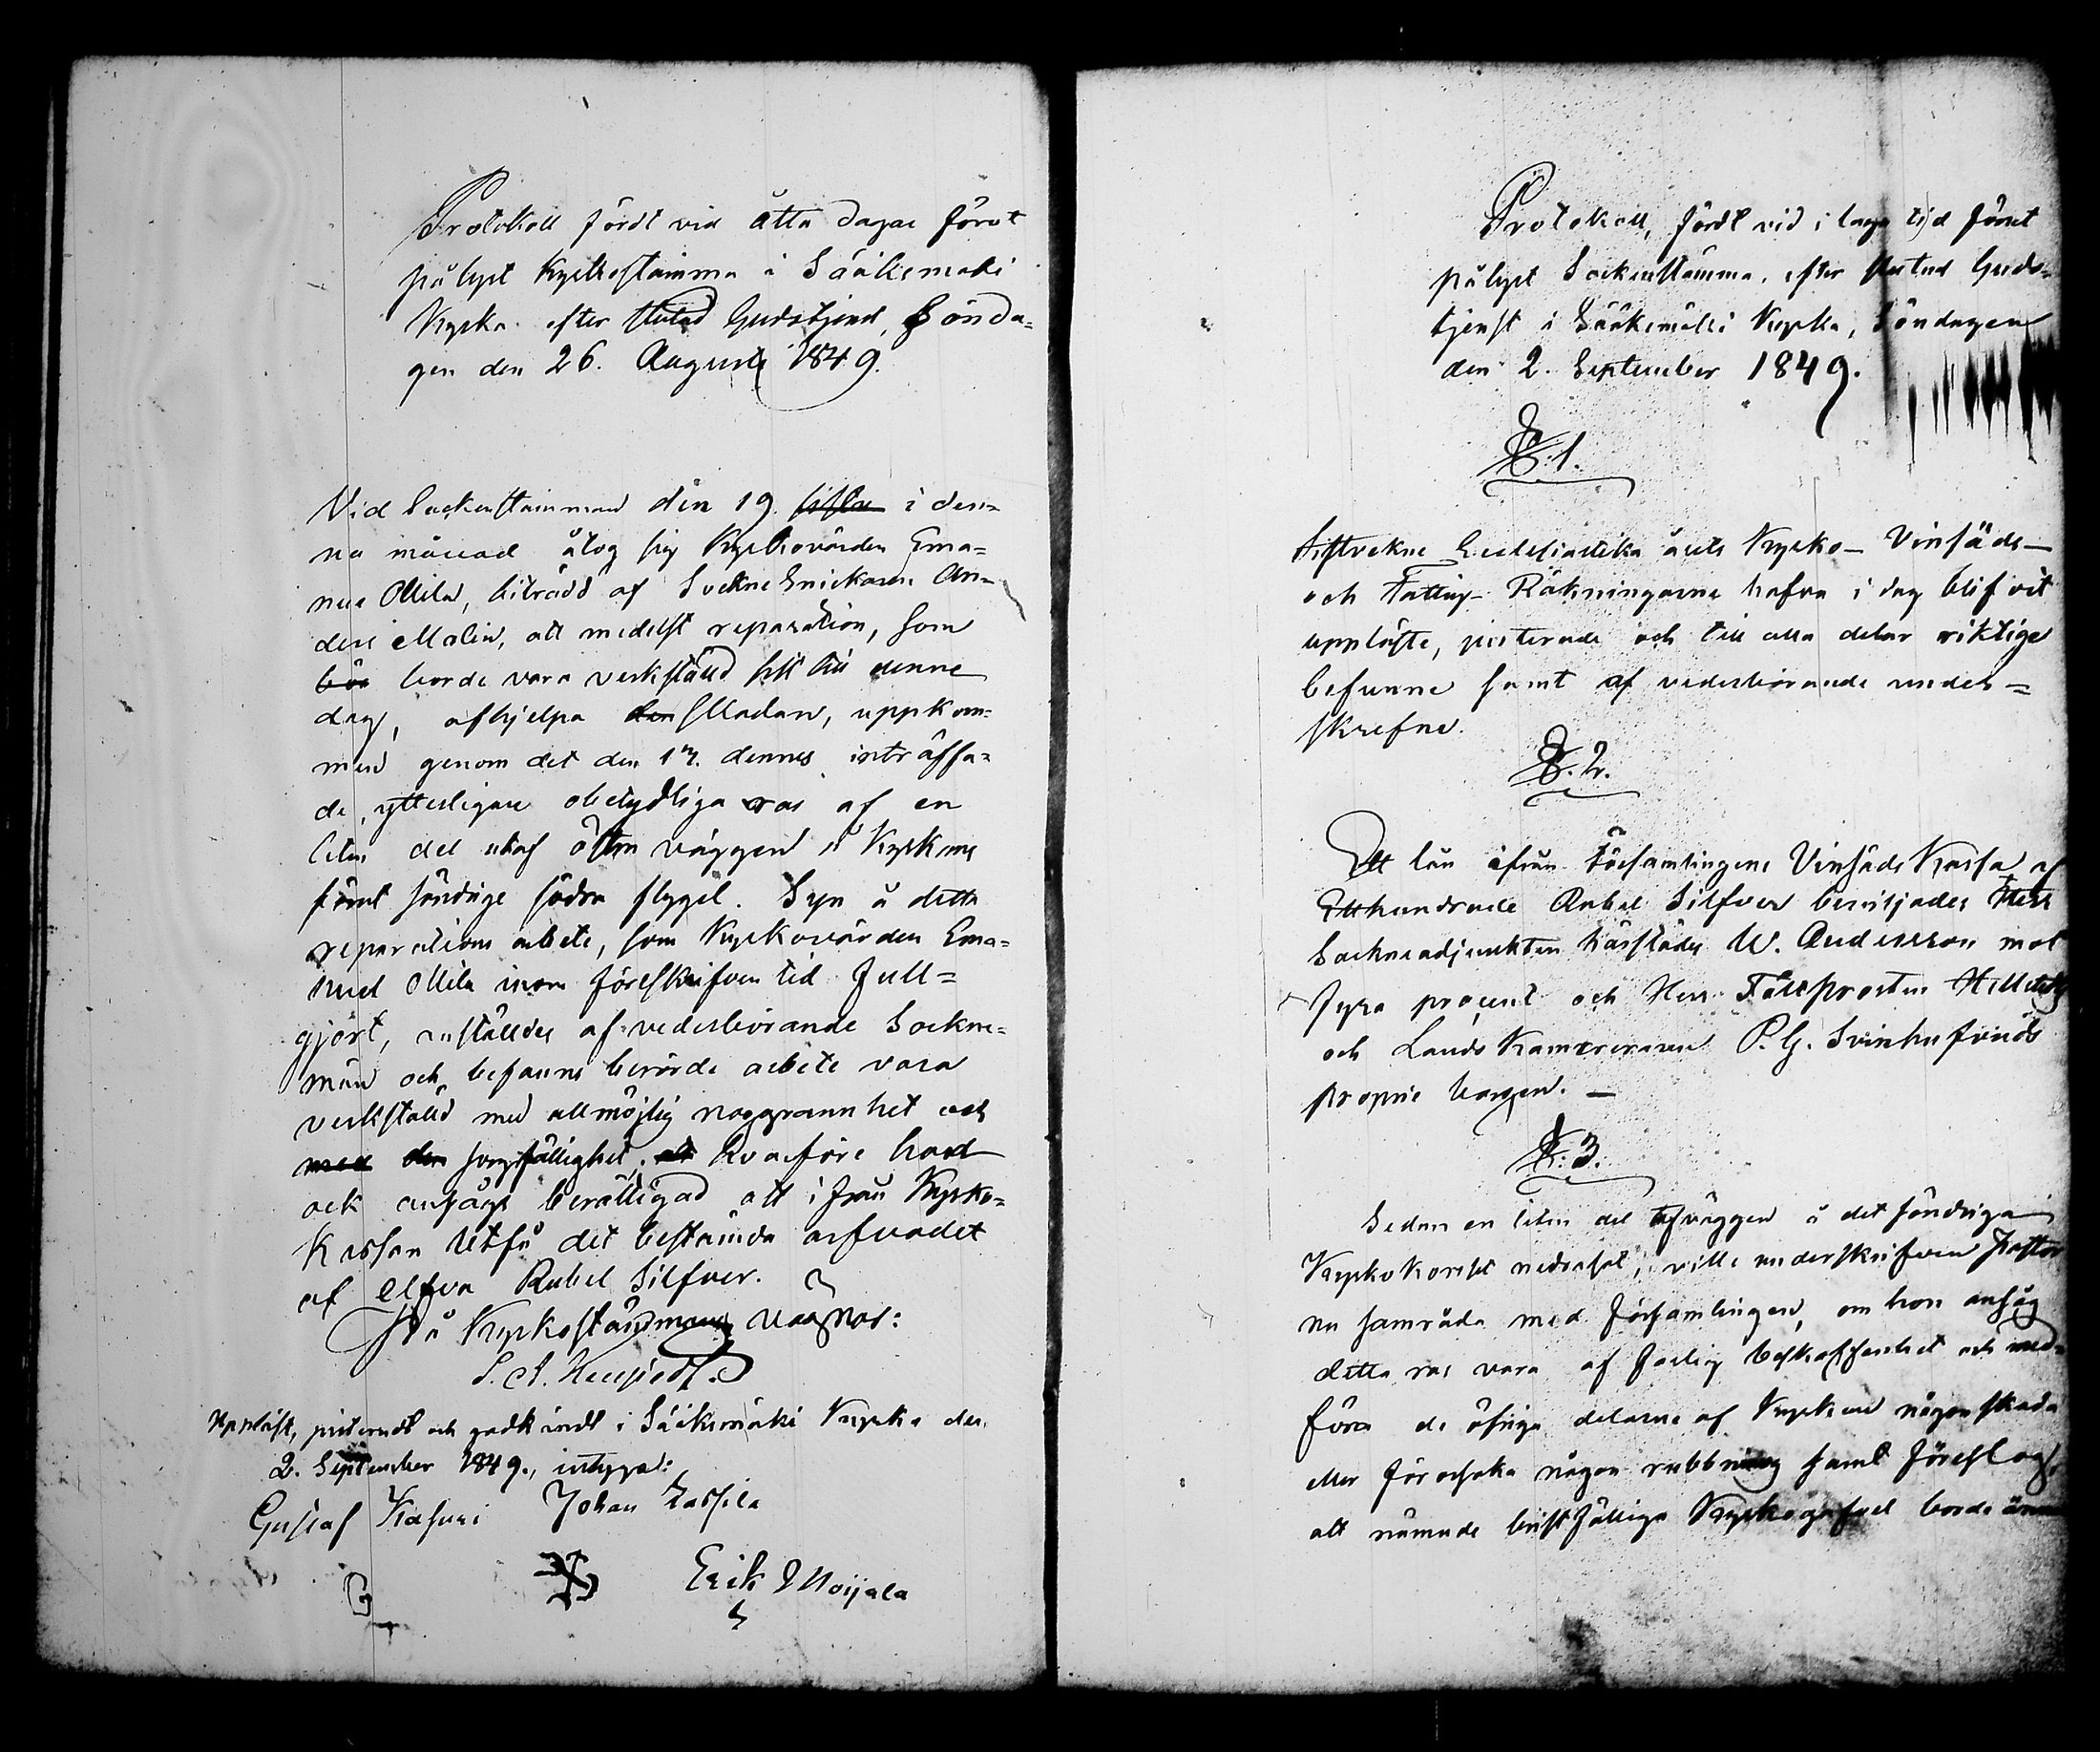 Protokoll fördt vid åtta dagar förut
pålyst Kyrkostämma i Sääksmäki
Kyrka efter slutad Gudstjenst, Sönda-
gen den 26. Augusti 1849.
Vid Sockenstämman den 19. sistl. i den-
na månad åtog sig Kyrkovärden Ema-
nuel Mila, biträdd af Sockne Snickaren An-
ders Malin, att medelst reparation, som
bör borde vara verkställd sist till denne
dag, afhjelpa den skadan, uppkom-
men genom det den 17. dennes inträffa-
de, ytterligare obetydliga ras af en
liten del utaf östra väggen i Kyrkans
förut söndrige södra flygel. Syn å detta
reparations arbete, som Kyrkovärden Ema-
nuel Mila inom föreskrifven tid full-
gjört, anställdes af vederbörande Sockne-
män och befanns berörde arbete vara
verkställd med allmöjlig noggrannhet och
med den sorgfällighet, att hvarföre han
ock ansågs berättigad att ifrån Kyrko-
Kassan Utfå det bestämda arfvodet
af elfva Rubel Silfver.
På Kyrkostämmans vägnar:
Uppläst, justeradt och godkändt i Sääksmäki Kyrka den
2. September 1849., intyga:
Gustaf Kasuri Johan Lassila
Erik Moijala
Protokoll, fördt vid i laga tid förut
pålyst Sockenstämma, efter slutad Guds-
tjenst i Sääksmäki Kyrka, Söndagen
den 2. September 1849.
§.1.
Sistvekne Ecclesiastika årets Kyrko- Vinsäds-
och Fattig- Räkningarne hafva i dag blifvit
uppläste, justerade och till alla delar riktige
befunne samt af vederbörande under-
skrefne.
§.2.
Ett lån ifrån Församlingens Vinsäds Kassa af
Etthundrade Rubel Silfver beviljades Herr
Sockneadjunkten härstädes W. Andersson mot
fyra procent och Herr Fältprosten
och Lands Kamererarens P. G. Svinhufvuds
proprie borgen. —
§.3.
Sedan en liten del af väggen å det söndriga
Kyrkokorset nedrasat, ville underskrifven Pastor
nu samråda med Församlingen, om hon ansåg
detta ras vara af farlig beskaffenhet och med-
föra de öfriga delarne af Kyrkan någon skada
eller förorsaka någon rubbning samt föreslog,
att nämnde bristfälliga Kyrkogafvel borde